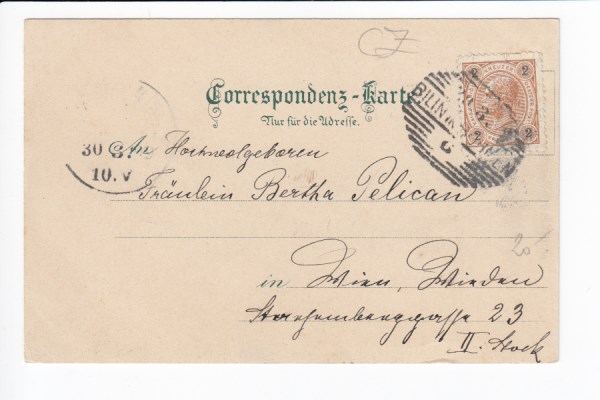 CZ
Correspondenz-Karte
Nur für die Adresse.
2 2
2 2
BILIN IN
An Hochwohlgeboren
30 8.
10.V
Fräulein Bertha Pelican
in Wien, Wieden
Starhemberggasse 23
II. Stock
20